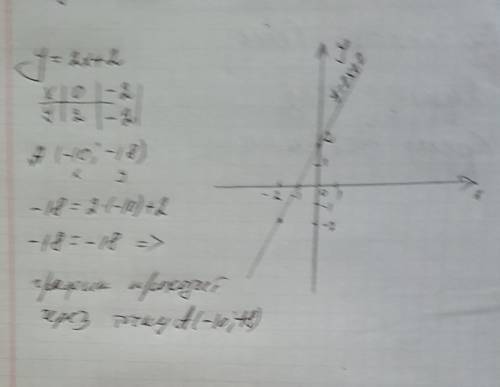 y = 2x+2
x | 0 | -2
y | 2 | -2
A (-10; -18)
x y
-18 = 2·(-10)+2
-18 = -18 =>
график проходит
через точку A(-10; -18)
y
y=2x+2
2
1
-2 -1 0 1
-1
-2
x